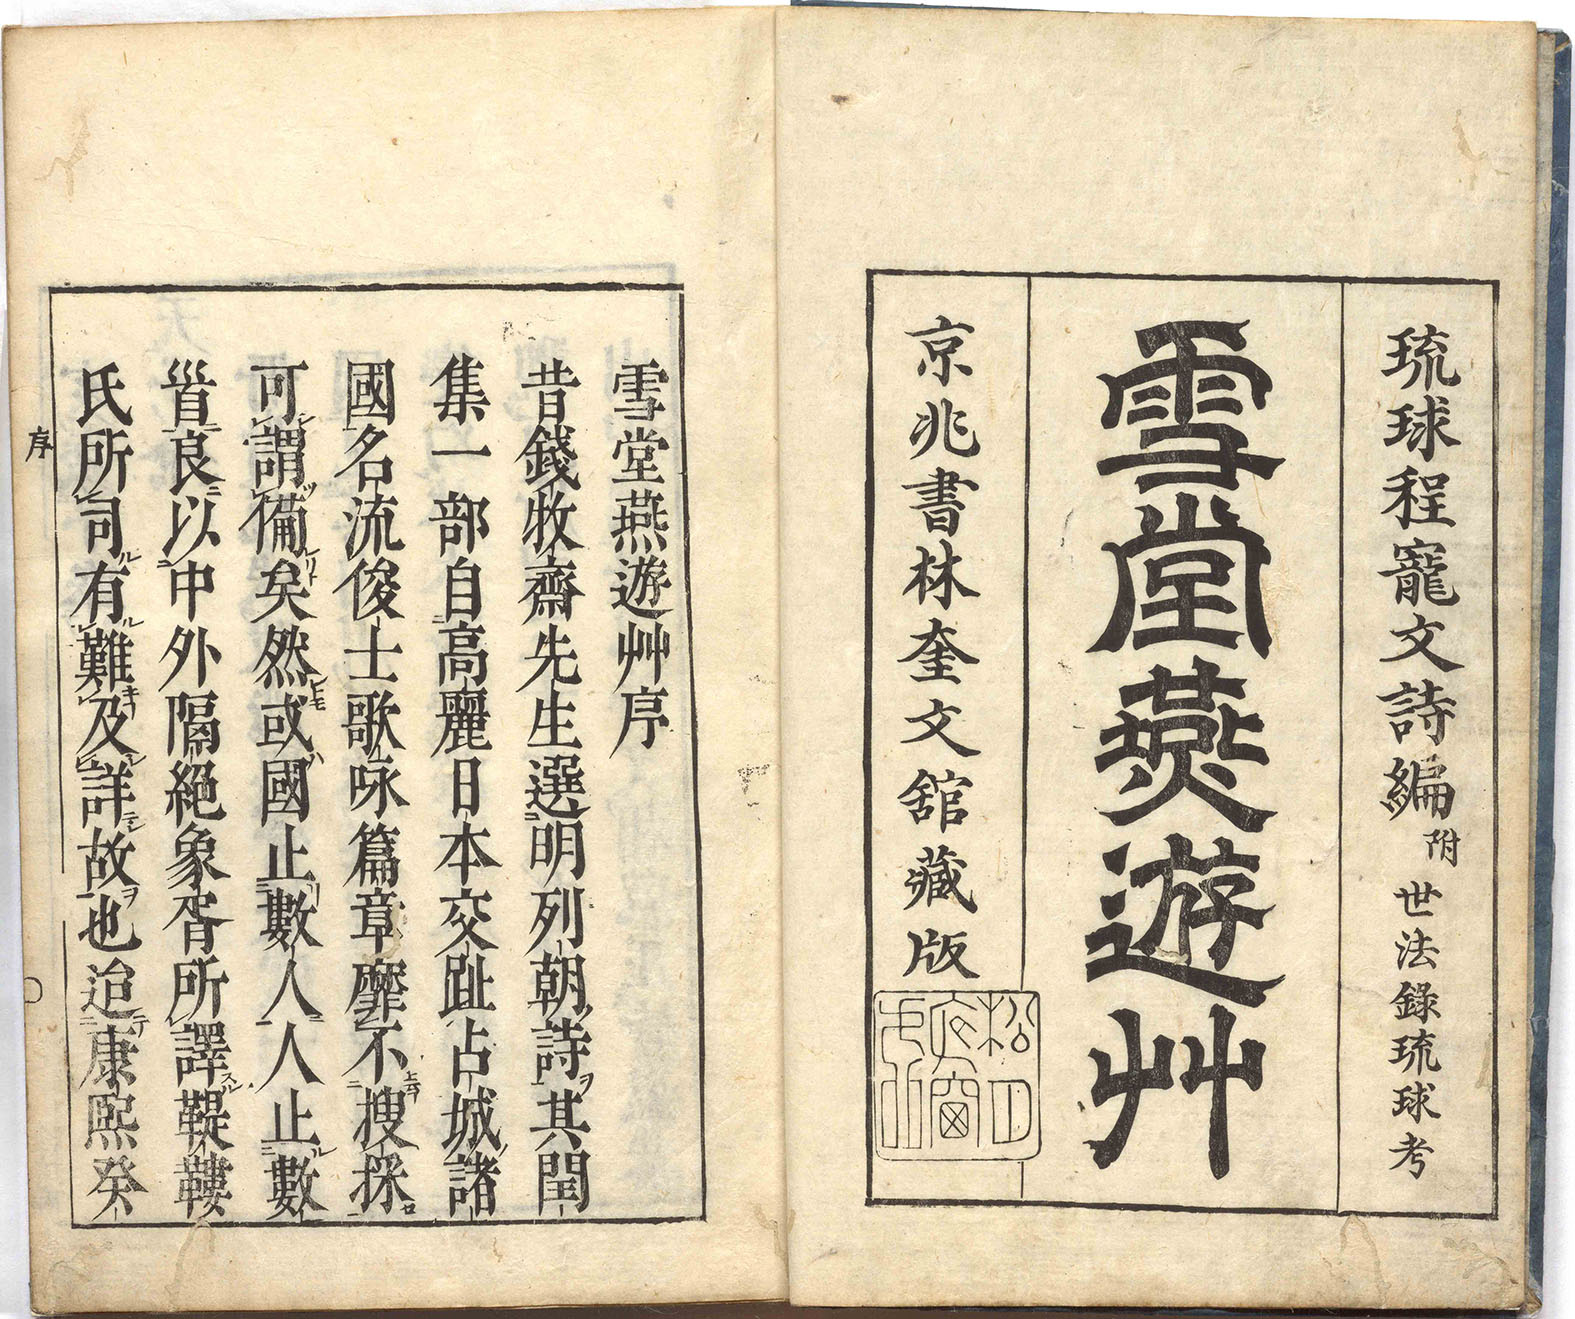 琉球程寵文詩編附世法錄琉球考
雪堂燕遊艸
京兆書林奎文舘藏版
雪堂燕遊艸序
昔錢牧齋先生選明列朝詩其閏
集一部自高麗日本交趾占城諸
國名流俊士歌咏篇章靡不搜採
可謂備矣然或國止數人人止數
𩠐良以中外隔絕象胥所譯鞮鞻
氏所司有難及詳故也迨康熙癸
序